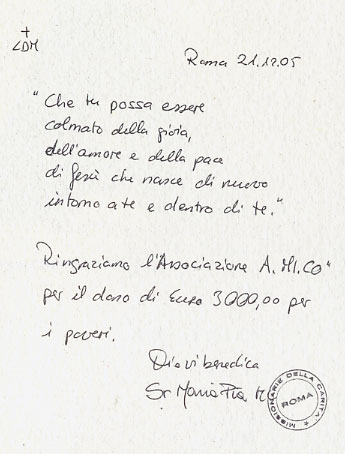 +
LDM
Roma 21.12.05
"Che tu possa essere
colmato della gioia,
dell'amore e della pace
di Gesù che nasce di nuovo
intorno a te e dentro di te."
Ringraziamo l'Associazione A.MI.CO"
per il dono di Euro 3000,00 per
i poveri.
Dio vi benedica
Sr Maria Pia M
MISSIONARIE DELLA CARITÀ
ROMA